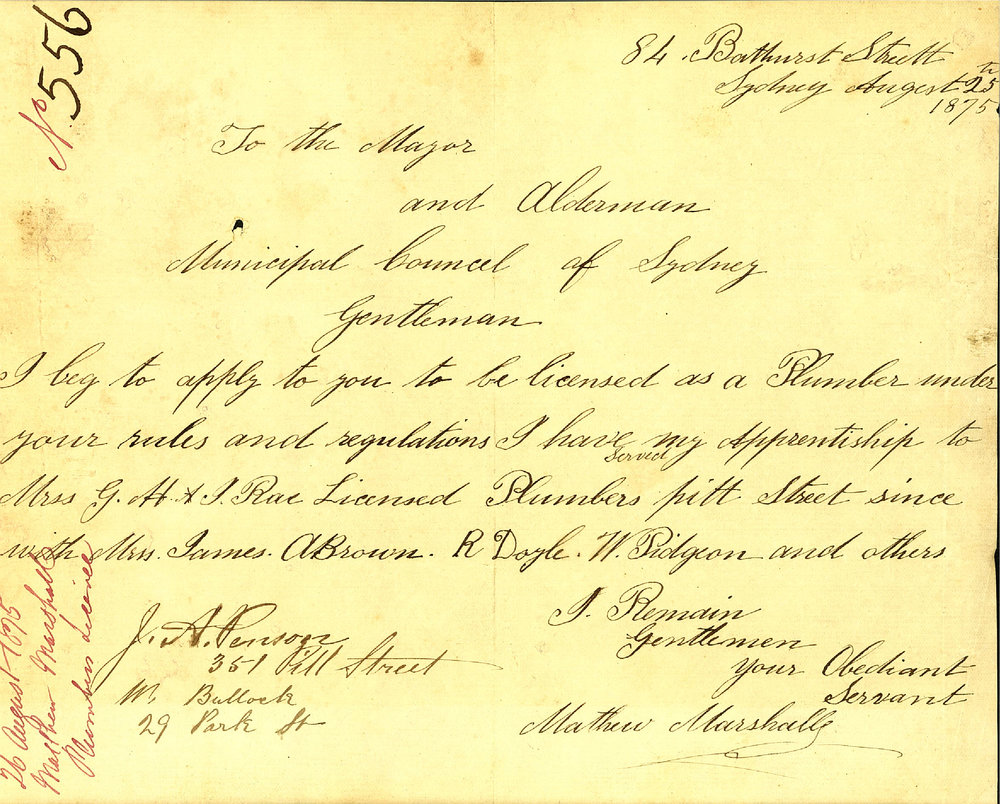 No 556
84 . Bathurst Strett
Sydney Augest 25th
1875
To the Mayor
and Alderman
Municipal Councel of Sydney
Gentleman
I beg to apply to you to be licensed as a Plumber under
your rules and regulations I have served my Apprentiship to
Mrss G. H & J. Rae Licensed Plumbers pitt Street since
with Mrss. James. A Brown. R Doyle. W. Pidgeon and others
I. Remain
Gentlemen
Your Obediant
Servant
Mathew Marshall
J. A. Penson
351 Pitt Street
W. Bullock
29 Park St
26 August 1875
Matthew Marshall
Plumbers License